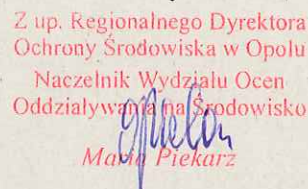 Z up. Regionalnego Dyrektora
Ochrony Środowiska w Opolu
Naczelnik Wydziału Ocen
Oddziaływania na Środowisko
Maria Piekarz